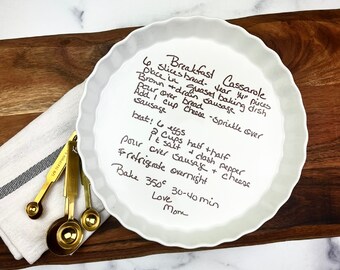 Breakfast Casserole
6 slices bread - tear into pieces
Place in greased baking dish
Brown & drain sausage
pour over bread
Add 1 cup cheese - sprinkle over
sausage
beat: 6 eggs
2 cups half & half
1 t salt & dash pepper
pour over sausage & cheese
& refrigerate overnight
Bake 350° 30-40 min
Love
Mom